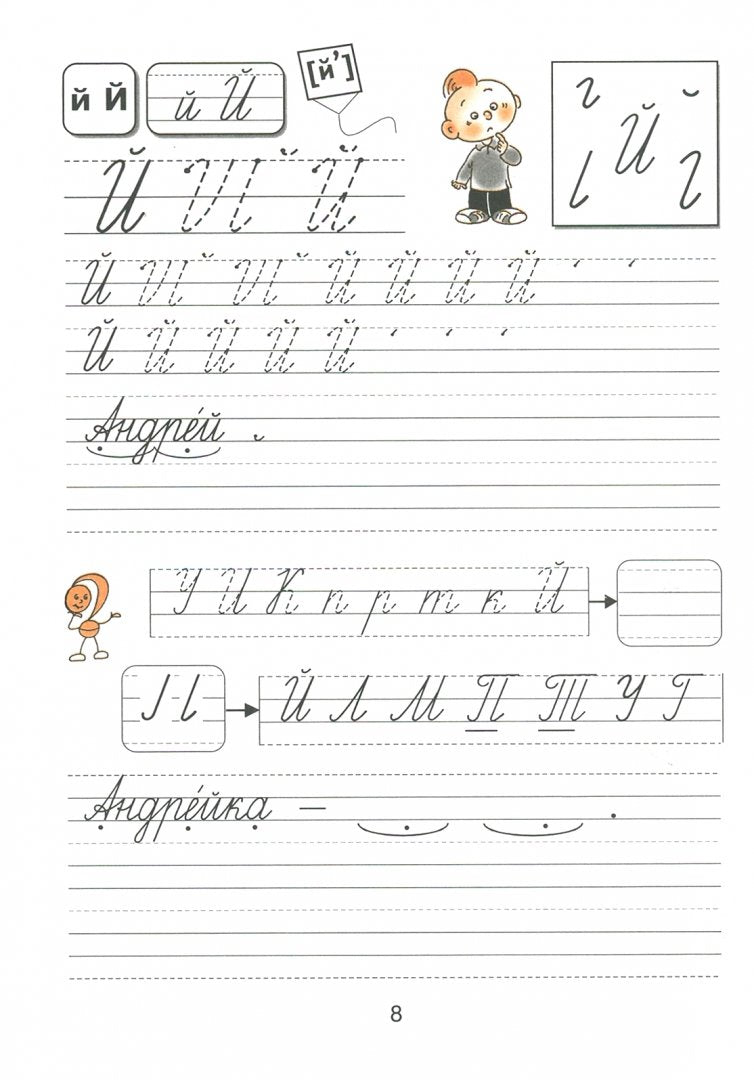 й Й й Й [й’]
Й
Й И ̆ Й
Й И ̆ И ̆ Й Й Й Й
Й Й Й Й Й
Андре́й ̆ .
У И К п р т к Й
Й Л М П Т У Г
Андре́йка – .
8